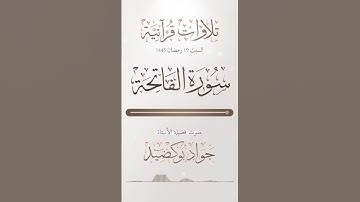 تلاوات قرآنية
السبت 19 رمضان 1445
سورة الفاتحة
بصوت فضيلة الأستاذ
جواد بوكضيد